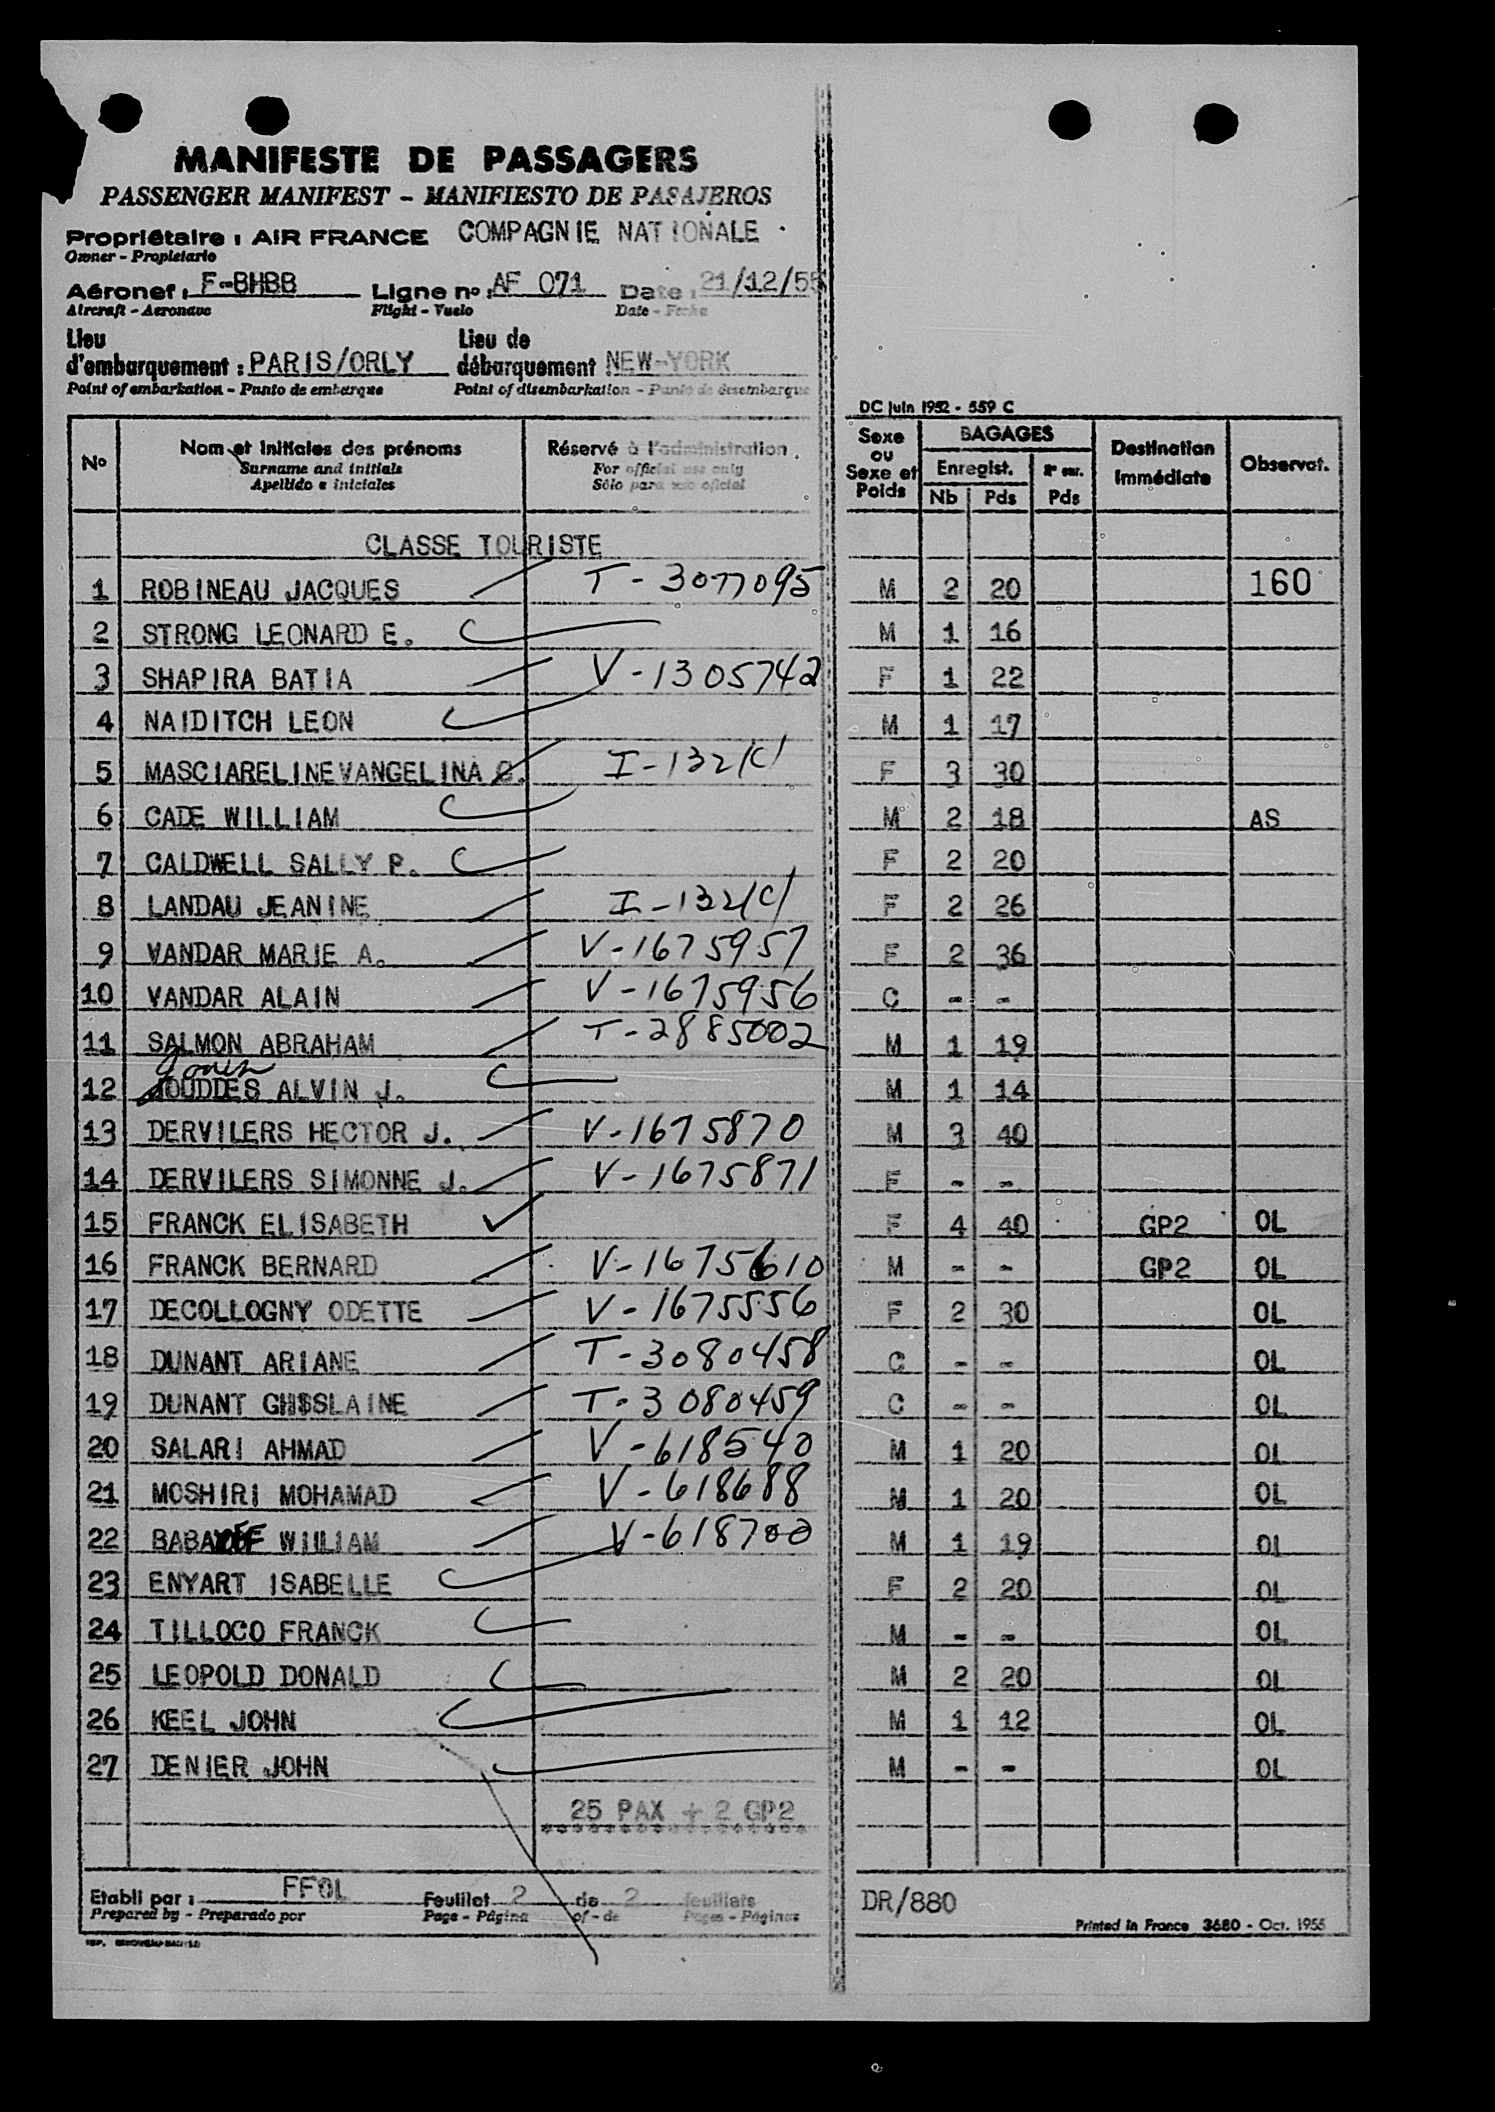 MANIFESTE DE PASSAGERS
PASSENGER MANIFEST - MANIFIESTO DE PASAJEROS
Propriétaire : AIR FRANCE COMPAGNIE NATIONALE
Owner - Propietario
Aéronef : F-BHBB Ligne no : AF 071 Date : 21/12/55
Aircraft - Aeronave Flight - Vuelo Date - Fecha
Lieu Lieu de
d'embarquement : PARIS/ORLY débarquement NEW-YORK
Point of embarkation - Punto de embarque Point of disembarkation - Punto de desembarque
DC Juin 1952 - 559 C
No Nom et initiales des prénoms Réservé à l'administration Sexe ou Sexe et Poids BAGAGES Destination Immédiate Observat.
Surname and initials For official use only Enregist.
Apellido e iniciales Sólo para uso oficial Nb Pds Pds
CLASSE TOURISTE
1 ROBINEAU JACQUES T-3077095 M 2 20 160
2 STRONG LEONARD E. M 1 16
3 SHAPIRA BATIA V-1305742 F 1 22
4 NAIDITCH LEON M 1 17
5 MASCIARELINEVANGELINA C. I-132(C) F 3 30
6 CADE WILLIAM M 2 18 AS
7 CALDWELL SALLY P. F 2 20
8 LANDAU JEANINE I-132(C) F 2 26
9 VANDAR MARIE A. V-1675957 F 2 36
10 VANDAR ALAIN V-1675956 C - -
11 SALMON ABRAHAM T-2885002 M 1 19
12 JOUDDES ALVIN J. M 1 14
13 DERVILERS HECTOR J. V-1675870 M 3 40
14 DERVILERS SIMONNE J. V-1675871 F - -
15 FRANCK ELISABETH F 4 40 GP2 OL
16 FRANCK BERNARD V-1675610 M - - GP2 OL
17 DECOLLOGNY ODETTE V-1675556 F 2 30 OL
18 DUNANT ARIANE T-3080458 C - - OL
19 DUNANT GHISLAINE T-3080459 C - - OL
20 SALARI AHMAD V-618540 M 1 20 OL
21 MOSHIRI MOHAMAD V-618688 M 1 20 OL
22 WILLIAM V-618700 M 1 19 OL
23 ENYART ISABELLE F 2 20 OL
24 TILLOCO FRANCK M - - OL
25 LEOPOLD DONALD M 2 20 OL
26 KEEL JOHN M 1 12 OL
27 DENIER JOHN M - - OL
25 PAX + 2 GP2
******************
Etabli par : FFOL Feuillet 2 de 2 feuillets DR/880
Prepared by - Preparado por Page - Página of - de Pages - Páginas Printed in France 3680 - Oct. 1955